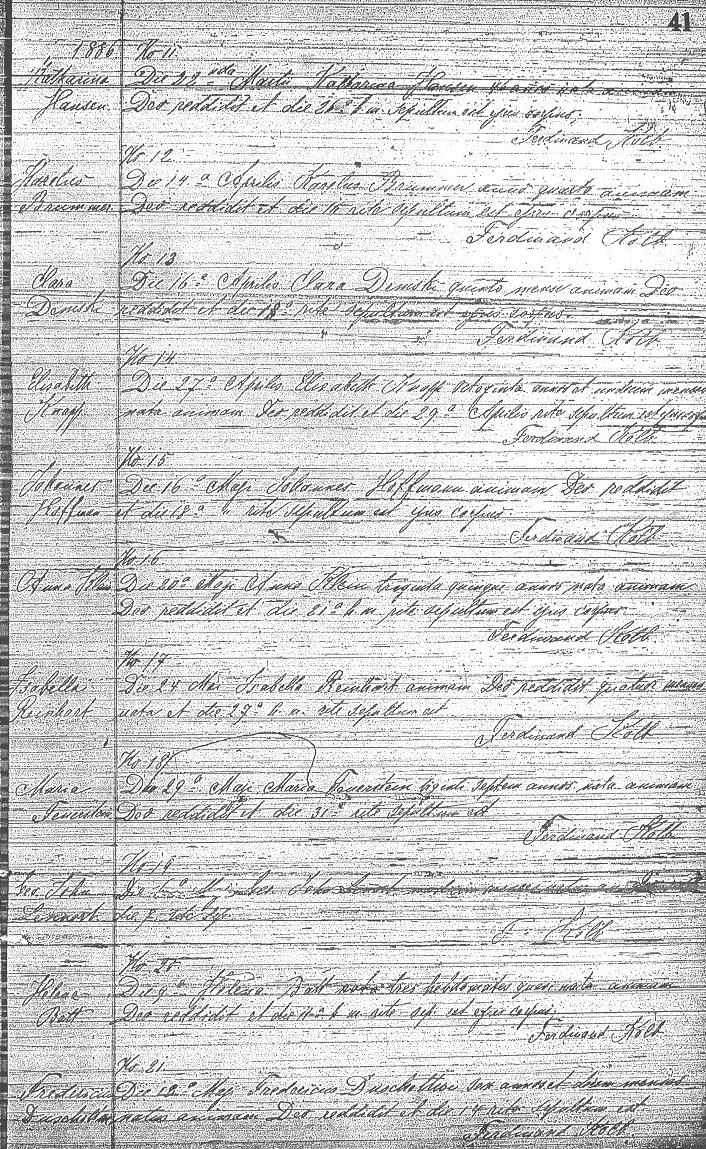 41
1886 No 11
Katharina Die 22 nda Martis Katharina Hansen nata
Hansen. Deo reddidit et die 26 a h. m. sepultum est ejus corpus.
Ferdinand Kolb
No 12
Karolus Die 14 a Aprilis Karolus Brummer anno quarto animam
Brummer Deo reddidit et die 15 rite sepultum est ejus corpus
Ferdinand Kolb
No 13
Clara Die 16 a Aprilis Clara Demski quinto mense animam Deo
Demski reddidit et die 18 a rite sepultum est ejus corpus.
Ferdinand Kolb
No 14
Elisabeth Die 27 a Aprilis Elisabeth Knapp octoginta annos et undecim menses
Knapp nata animam Deo reddidit et die 29 a Aprilis rite sepultum est ejus corpus
Ferdinand Kolb
No 15
Johannes Die 16 a Maji Johannes Hoffmann animam Deo reddidit
Hoffman et die 18 a rite sepultum est ejus corpus.
Ferdinand Kolb
No 16
Anna Die 20 a Maji Anna triginta quinque annos nata animam
Deo reddidit et die 21 a h. m. rite sepultum est ejus corpus
Ferdinand Kolb
No 17
Isabella Die 24 Mai Isabella Reinhart animam Deo reddidit quatuor menses
Reinhart nata et die 27 a h. m. rite sepultum est
Ferdinand Kolb
No 18
Maria Die 29 a Maji Maria Feuerstein viginti septem annos nata animam
Feuerstein Deo reddidit et die 31 a rite sepultum est
Ferdinand Kolb
No 19
Geo. John Die John
die rite sep.
F. Kolb
No 20
Helena Die 9 a Helena Batt nata tres hebdomates quasi nata animam
Batt Deo reddidit et die h. m. rite sep. est ejus corpus.
Ferdinand Kolb
No 21
Fredericus Die 12 a Maji Fredericus annos et decem menses
natus animam Deo reddidit et die 14 rite sepultum est
Ferdinand Kolb.